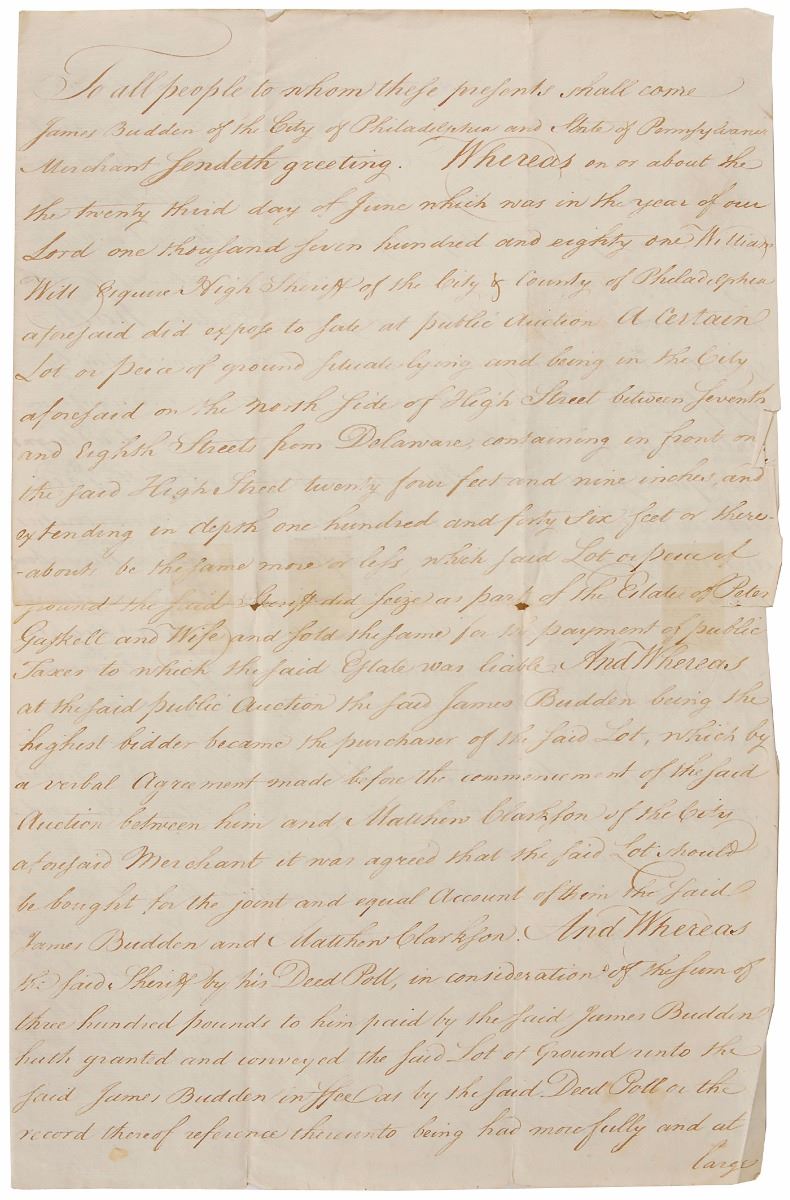 To all people to whom these presents shall come
James Budden of the City of Philadelphia and State of Pennsylvania
Merchant Sendeth greeting. Whereas on or about the
the twenty third day of June which was in the year of our
Lord one thousand seven hundred and eighty one William
Will Esquire High Sheriff of the City & County of Philadelphia
aforesaid did expose to sale at public Auction A Certain
Lot or peice of ground situate lying and being in the City
aforesaid on the north side of High Street between Seventh
and Eighth Streets from Delaware, containing in front on
the said High Street twenty four feet and nine inches, and
extending in depth one hundred and forty six feet or there-
-abouts be the same more or less, which said Lot or peice of
ground the said Sheriff did seize as part of the Estate of Peter
Gaskell and Wife and sold the same for the payment of public
Taxes to which the said Estate was liable And Whereas
at the said public Auction the said James Budden being the
highest bidder became the purchaser of the said Lot, which by
a verbal Agreement made before the commencement of the said
Auction between him and Matthew Clarkson of the City
aforesaid Merchant it was agreed that the said Lot should
be bought for the joint and equal Account of them the said
James Budden and Matthew Clarkson. And Whereas
the said Sheriff by his Deed Poll, in consideration of the sum of
three hundred pounds to him paid by the said James Budden
hath granted and conveyed the said Lot of Ground unto the
said James Budden in ffee as by the said Deed Poll or the
record thereof reference thereunto being had more fully and at
large